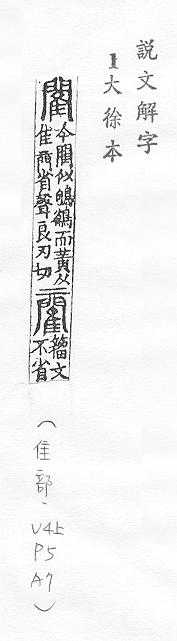 說文解字
1大徐本
閵
今閵似鴝鵒而黃从
隹省聲良刃切
籒文
不省
（隹部、V4上 P5 A7）